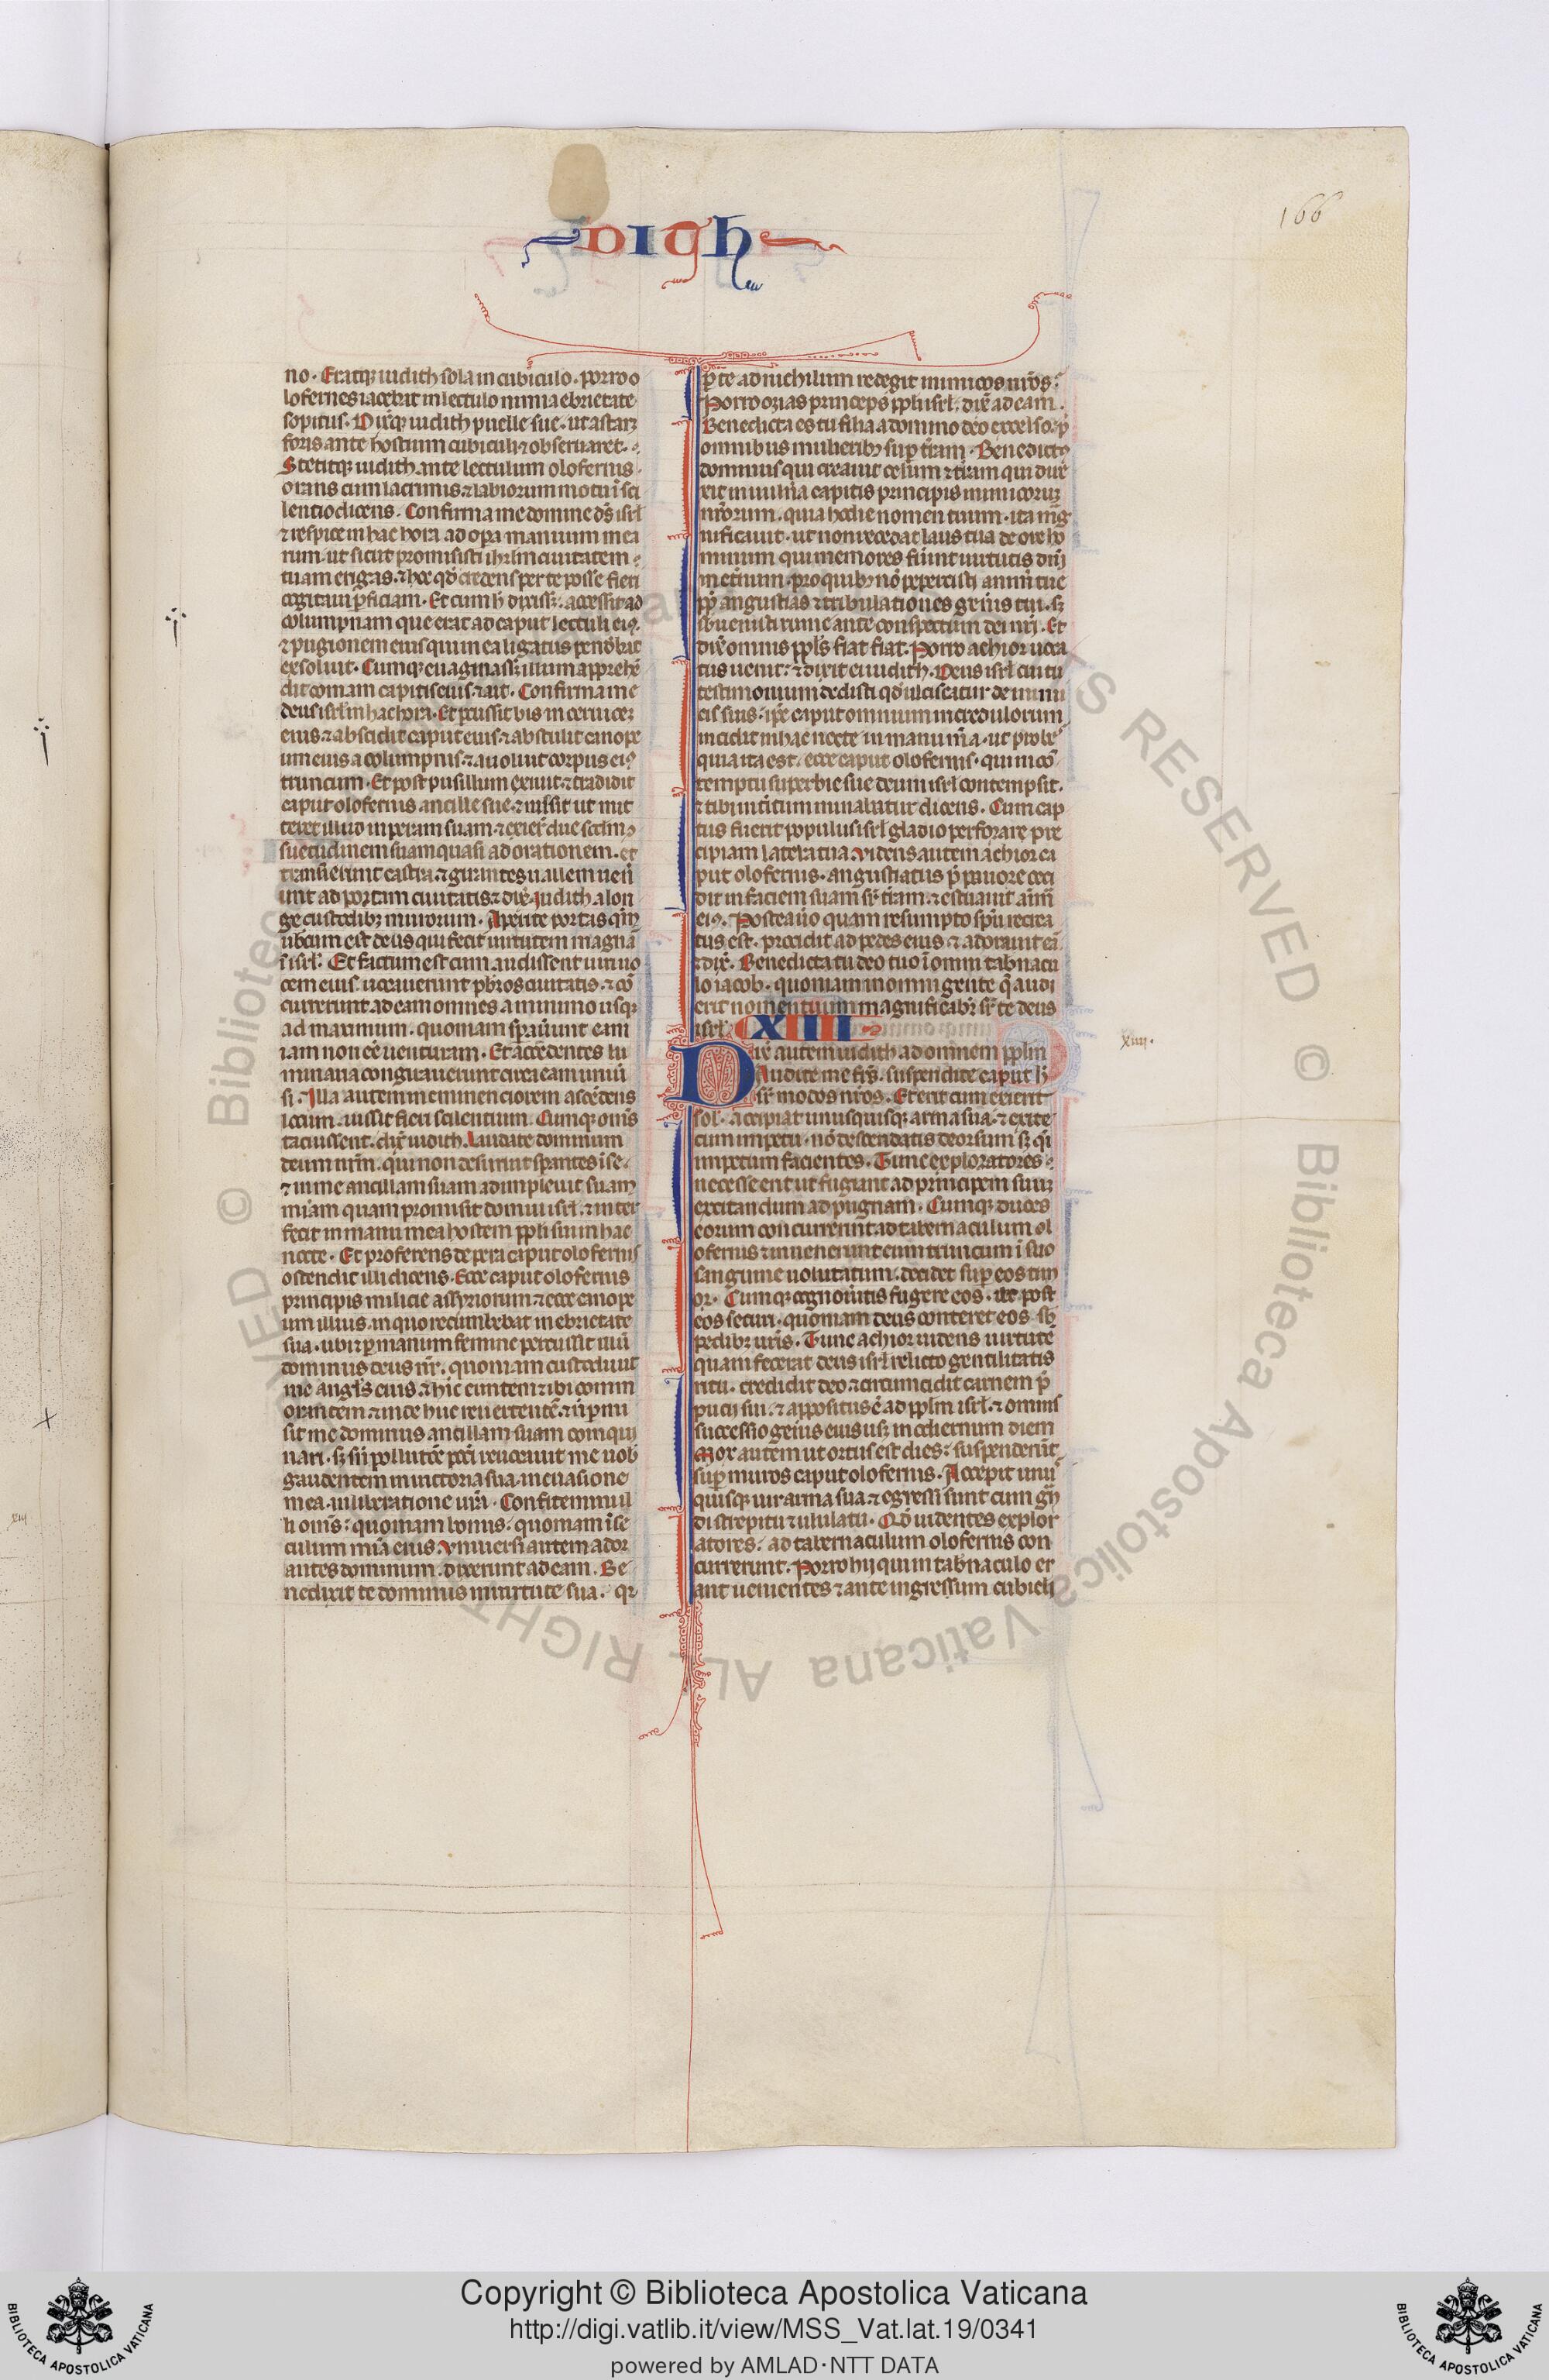 DIGH
166
no. Eratqꝫ iudith sola in cubiculo. porro o
lofernes iacebat in lectulo nimia ebrietate
sopitus. Dixitqꝫ iudith puelle sue. ut staret
foris ante hostium cubiculi ⁊ obseruaret.
Stetitqꝫ iudith ante lectulum olofernis.
orans cum lacrimis. ⁊ labiorum motu ī sci
lentio dicens. Confirma me domine dꝰs isrl
⁊ respice in hac hora ad opa manuum mea
rum. ut sicut promisisti ihrlm ciuitatem
tuam erigas. ⁊ hoc qd̄ credens per te posse fieri
cogitaui ꝑficiam. Et cum h̄ dixissꝫ. accessit ad
columpnam que erat ad caput lectuli eiꝰ.
⁊ pugionem eius qui in ea ligatus pendebat
exsoluit. Cumqꝫ euaginassꝫ illum apprehē
dit comam capitis eius. ⁊ ait. Confirma me
deus isrl in hac hora. Et ꝑcussit bis in ceruicē
eius ⁊ abscidit caput eius. ⁊ abstulit canope
um eius a columpnis. ⁊ auoluit corpus eiꝰ
truncum. Et post pusillum exiuit. ⁊ tradidit
caput olofernis ancille sue. ⁊ iussit ut mit
teret illud in peram suam. ⁊ exierūt due scdm ꝯ
suetudinem suam quasi ad orationem. et
transierunt castra. ⁊ girantes uallem uenē
unt ad portam ciuitatis. ⁊ dix̄. iudith a lon
ge custodibꝫ murorum. Aperite portas qm̄
nobiscum est deus qui fecit uirtutem magnā
ī isrl. Et factum est cum audissent uiri uo
cem eius. uocauerunt pbr̄os ciuitatis. ⁊ cō
currerunt ad eam omnes. a minimo usqꝫ
ad maximum. quoniam sperauerunt eam
iam non eē uenturam. Et accedentes lu
minaria congirauerunt circa eam uniū
si. Illa autem in eminenciorem ascēdens
locum. iussit fieri scilentium. Cumqꝫ oms̄
tacuissent. dix̄ iudith. Laudate dominum
deum nrm̄. qui non deseruit sperantes ī se.
⁊ in me ancillam suam adimpleuit suam
miam quam promisit domui isrl. ⁊ inter
fecit in manu mea hostem ppli sui in hac
nocte. Et proferens de pera caput olofernis
ostendit illi dicens. Ecce caput olofernis
principis milicie assyriorum. ⁊ ecce canope
um illius. in quo recumbebat in ebrietate
sua. ubi ꝑ manum femine percussit illū
dominus deus nr̄. quoniam custodiuit
me angls̄ eius. ⁊ hic euntem ⁊ ibi comm
orantem ⁊ inde huc reuertentē. ⁊ ñ ꝑmi
sit me dominus ancillam suam coinqui
nari. sꝫ siñ pollutōe pcci̅ reuocauit me uob̄
gaudentem in uictoria sua. in euasione
mea. in liberatione ur̄i. Confitemini il
li oms̄: quoniam bonus: quoniam ī se
culum mia eius. Vniuersi autem ador
antes dominum. dixerunt ad eam. Be
nedixit te dominus in uirtute sua. qꝛ
ꝑ te ad nichilum redegit inimicos nrōs.
Porro ozias princeps ppli isrl. dix̄ ad eam.
Benedicta es tu filia a domino deo excelso. p̄
omnibus mulieribꝫ suꝑ tr̄am. Benedictꝰ
dominus qui creauit celum ⁊ tr̄am qui dire
xit in uulnera capitis principis inimicorum
nr̄orum. quia hodie nomen tuum. ita mag
nificauit. ut non recedat laus tua de ore ho
minum qui memores fuerint uirtutis dni̅
in eternum. pro quibꝫ nō pepercisti anime tue
ꝓp̄ angustias ⁊ tribulationes generis tui. sꝫ
subuenisti ruine ante conspectum dei nri̅. Et
dix̄ omnis ppls̄ fiat fiat. Porro achior uoca
tus uenit: ⁊ dixit ei iudith. Deus isrl cui tu
testimonium dedisti qd̄ ulciscatur de inimi
cis suis. ipe̅ caput omnium incredulorum
incidit in hac nocte in manu mea. ut probes
quia ita est. ecce caput olofernis. qui in cō
temptu superbie sue deum isrl contempsit.
⁊ tibi interitum minabatur dicens. Cum cap
tus fuerit populus isrl gladio perforare pre
cipiam latera tua. Videns autem achior ca
put olofernis. angustiatus p̄ pauore ceci
dit in faciem suam sr̄ tr̄am. ⁊ estuauit aīm̄
eiꝰ. Postea uō quam resumpto spu̅ recrea
tus est. procidit ad pedes eius ⁊ adorauit eā
⁊ dix̄. Benedicta tu deo tuo ī omni tabnacu
lo iacob. quoniam in omni gente q̄ audi
erit nomen tuum magnificabr̄ sr̄ te deus
isrl. XIIII
xiiii.
Dix̄ autem iudith ad omnem pplm
Audite me frs̄. suspendite caput h̄
sr̄ muros nr̄os. Et erit cum exierit
sol. accipiat unusquisqꝫ arma sua. ⁊ exite
cum impetu. nō descendatis deorsum sꝫ q̄i
impetum facientes. Tunc exploratores
necesse erit ut fugiant ad principem suum
excitandum ad pugnam. Cumqꝫ duces
eorum concurrerint ad tabernaculum ol
ofernis ⁊ inuenerint eum truncum ī suo
sanguine uolutatum. decidet suꝑ eos tim
or. Cumqꝫ cognoueritis fugere eos. ite post
eos securi. quoniam deus conteret eos sb̄
pedibꝫ uris̄. Tunc achior uidens uirtutē
quam fecerat deus isrl relicto gentilitatis
ritu. credidit deo. ⁊ circumcidit carnem p̄
pucii sui. ⁊ appositus ē ad pplm isrl. ⁊ omnis
successio generis eius usqꝫ in odiernum diem
Mox autem ut ortus est dies: suspenderūt
suꝑ muros caput olofernis. Accepit unꝰ
quisqꝫ uir arma sua. ⁊ egressi sunt cum gn̄
di strepitu ⁊ ululatu. Qd̄ uidentes explor
atores: ad tabernaculum olofernis con
currerunt. Porro hij qui in tabnaculo er
ant uenientes ⁊ ante ingressum cubicli
Copyright © Biblioteca Apostolica Vaticana
http://digi.vatlib.it/view/MSS_Vat.lat.19/0341
powered by AMLAD·NTT DATA
BIBLIOTECA APOSTOLICA VATICANA
BIBLIOTECA APOSTOLICA VATICANA